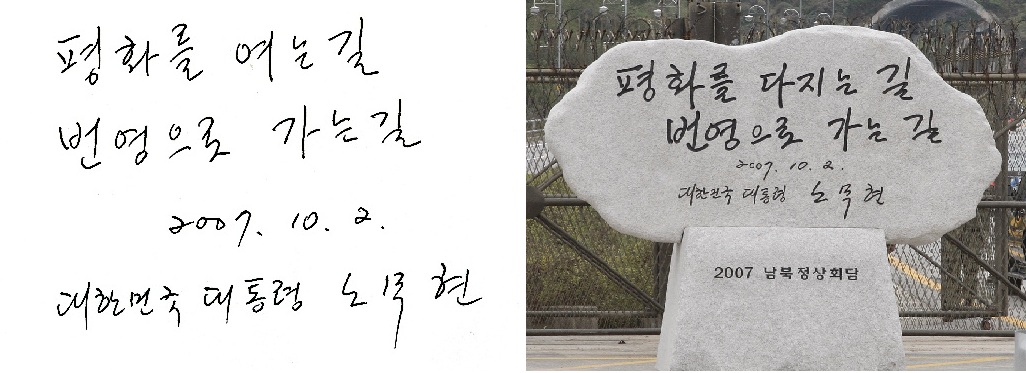 평화를 여는길
번영으로 가는길
2007. 10. 2.
대한민국 대통령 노무현
평화를 다지는 길
번영으로 가는 길
2007. 10. 2.
대한민국 대통령 노무현
2007 남북정상회담